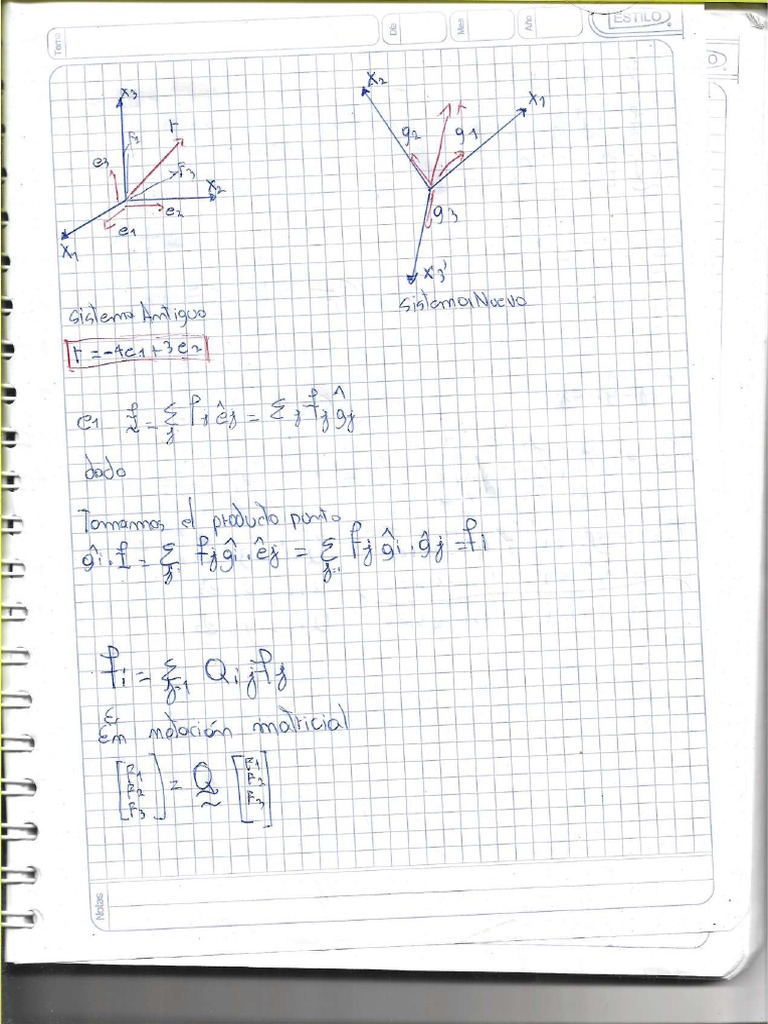 Tema
Día
Mes
Año
ESTILO
x3
r
F3
e3
x2
e2
e1
x1
x2
r
x1
g2
g1
g3
x3'
sistema Antiguo
sistema Nuevo
r = -4e1 + 3e2
e1 f = Σj fj êj = Σj fj ĝj
dado
Tomamos el producto punto
ĝi · f = Σj fj ĝi · êj = Σj fj ĝi · ĝj = fi
fi = Σj=1 Qij fj
Em notación matricial
[F1 F2 F3] = Q [F1 F2 F3]
Notas